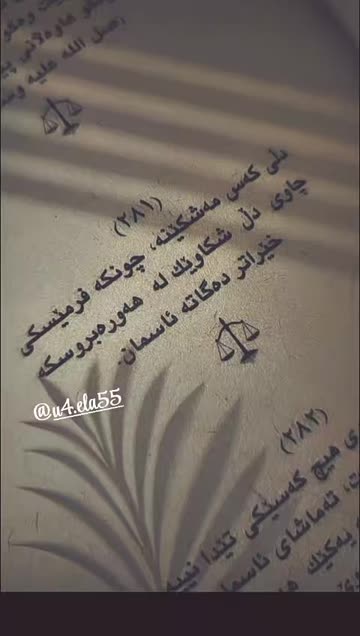 صل الله عليه وس
(٢٨١)
دڵی کەس مەشکێنە، چونکە فرمێسکی
چاوی دڵ شکاوێك لە هەورەبروسکە
خێراتر دەگاتە ئاسمان.
@u4.ela55
(٢٨٢)
ی هیچ کەسێکی تێدا نییە
، تەماشای ئاسما
یەکێك